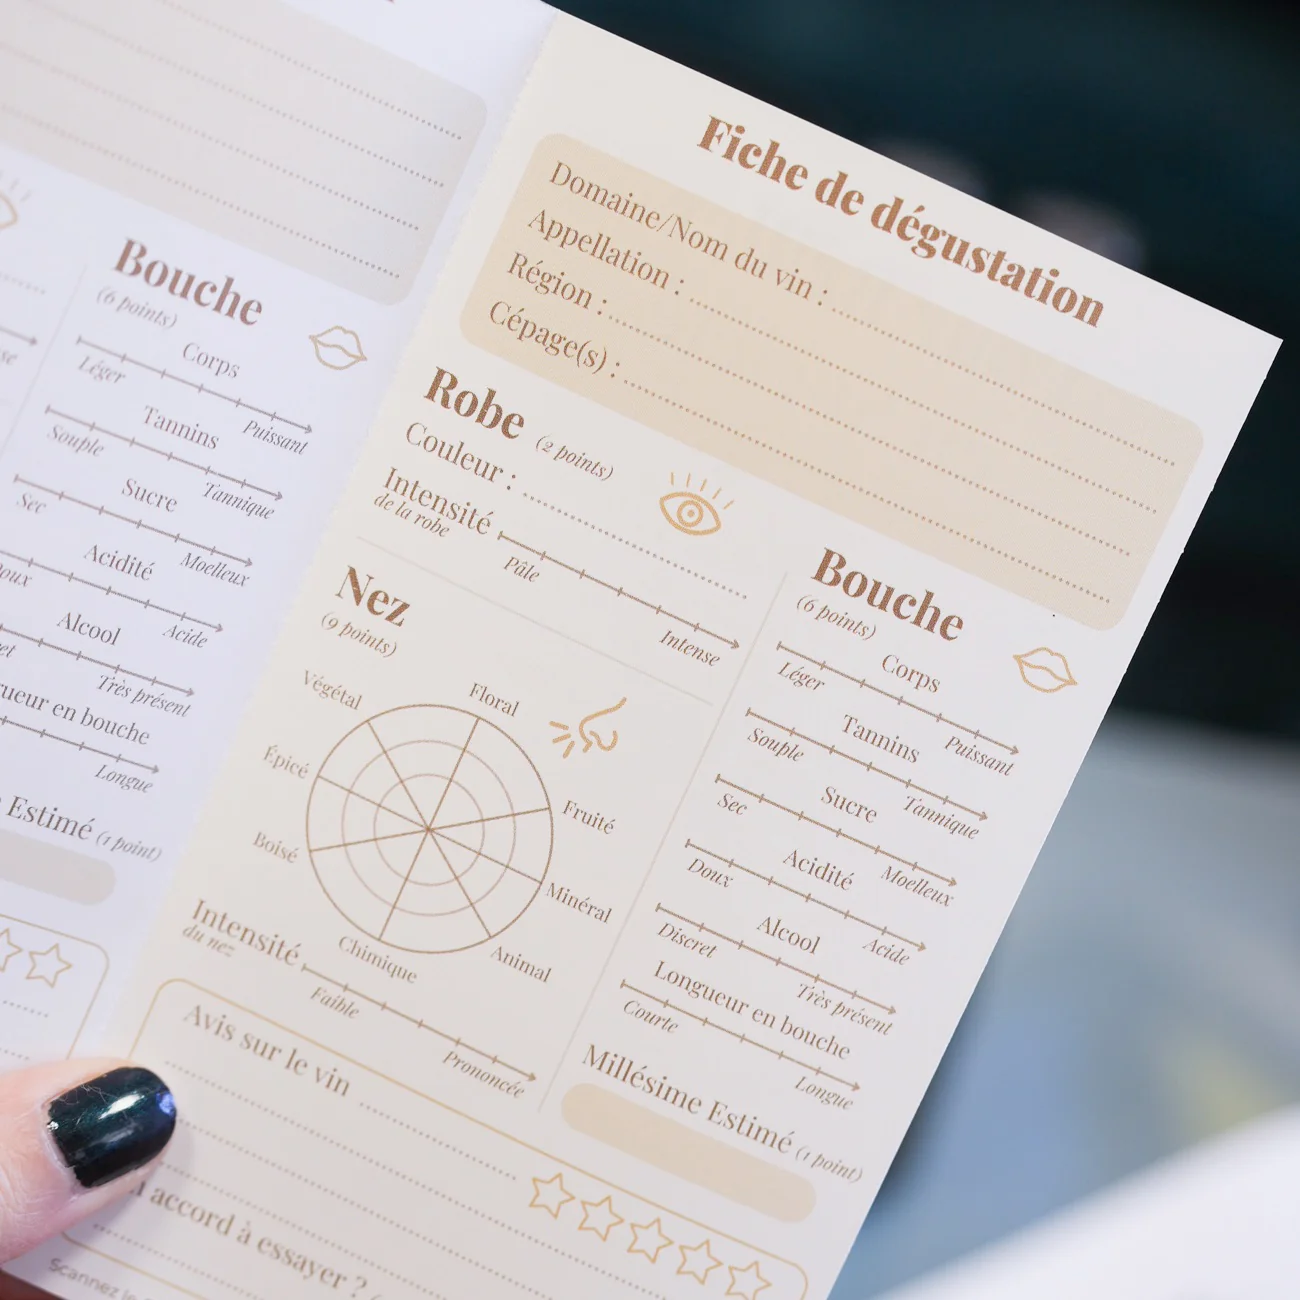 Bouche
(6 points)
Corps
Léger
Puissant
Tannins
Souple
Tannique
Sucre
Sec
Moelleux
Acidité
Acide
Alcool
Très présent
en bouche
Longue
Estimé (1 point)
Fiche de dégustation
Domaine/Nom du vin :
Appellation :
Région :
Cépage(s) :
Robe (2 points)
Couleur :
Intensité
de la robe
Pâle
Intense
Nez
(9 points)
Végétal
Floral
Épicé
Fruité
Boisé
Minéral
Chimique
Animal
Intensité
du nez
Faible
Prononcée
Bouche
(6 points)
Corps
Léger
Puissant
Tannins
Souple
Tannique
Sucre
Sec
Moelleux
Acidité
Doux
Acide
Alcool
Discret
Très présent
Longueur en bouche
Courte
Longue
Millésime Estimé (1 point)
Avis sur le vin
accord à essayer ?
Scannez